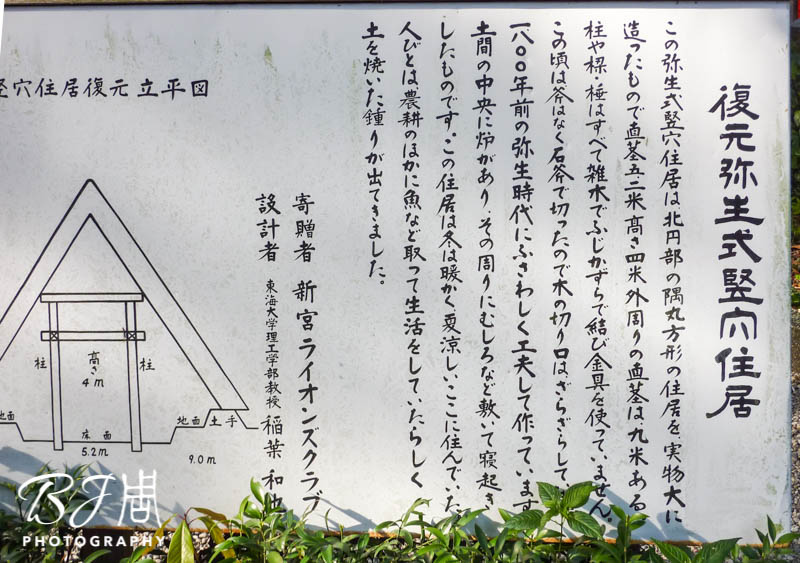 復元弥生式竪穴住居
この弥生式竪穴住居は、北円部の隅丸方形の住居を、実物大に
造ったもので直茎五.二米高さ四米外周りの直茎は、九米ある
柱や樑・棰はすべて雑木でふじかずらで結び金具を使っていません。
この頃は斧はなく石斧で切ったので木の切り口はざらざらして、
一八〇〇年前の弥生時代にふさわしく工夫して作っています
土間の中央に炉があり、その周りにむしろなど敷いて寝起き
したものです。この住居は冬は暖かく夏涼しい、ここに住んでいた
人びとは農耕のほかに魚など取って生活をしていたらしく
土を焼いた錘りが出てきました。
寄贈者 新宮ライオンズクラブ
設計者 東海大学理工学部教授 稲葉和也
穴住居復元立平図
柱
高さ
4m
柱
地面
床面
地面
土手
5.2m
9.0m
BJ
PHOTOGRAPHY